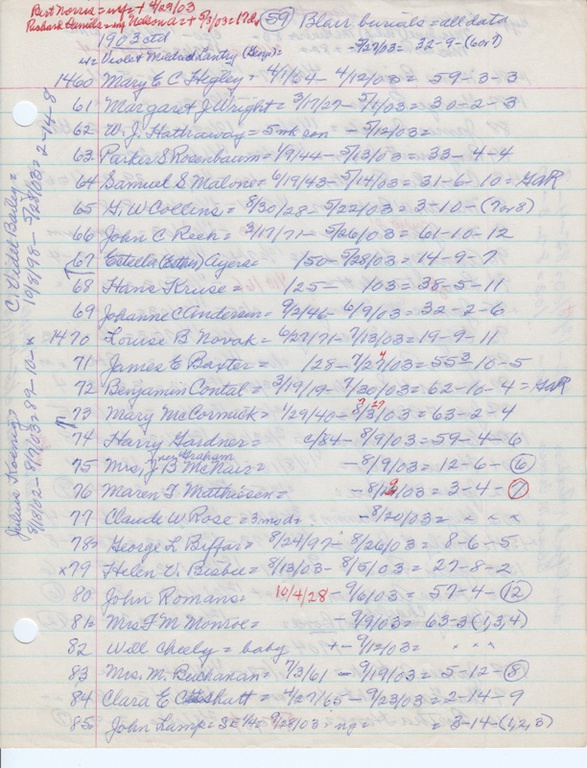 Bert Norris = + 4/29/03
(59) Blair burials = all data
Richard Daniels = + 5/3/03 = 17da
1903 ctd
Violet Mildred Lantry (Benj) = - 5/27/03 = 22-9-(6 or 7)
1460 Mary E C Hegley = 4/1/64 - 4/12/03 = 59-3-3
61 Margaret J Wright = 3/17/27 - 5/1/03 = 30-2-3
62 W. J. Hathaway = 5 mh son - 5/12/03 =
63 Parker S Rosenbaum = 1/9/44 - 5/13/03 = 33-4-4
64 Samuel S Malone = 6/19/43 - 5/14/03 = 31-6-10 = GAR
65 G. W Collins = 8/30/28 - 5/22/03 = 3-10-(7 or 8)
66 John C Reeh = 3/17/71 - 5/26/03 = 61-10-12
67 Estella () Ayers = 150 - 5/28/03 = 14-9-7
68 Hans Kruse = 125 - 103 = 38-5-11
69 Johanne C Andersen = 9/2/46 - 6/9/03 = 32-2-6
1470 Louise B Novak = 6/27/71 - 7/13/03 = 19-9-11
71 James E Baxter = 128 - 7/27/03 = 55-10-5
72 Benjamin Contal = 3/19/19 - 7/30/03 = 62-10-4 = GAR
7/29
73 Mary McCormick = 1/29/40 - 8/3/03 = 63-2-4
74 Harry Gardner = c/84 - 8/9/03 = 59-4-6
nee Graham
75 Mrs. J B McNair = - 8/9/03 = 12-6-(6)
76 Maren F Mathiesen = - 8/19/03 = 3-4-(7)
77 Claude W Rose = 3 mo ds - 8/20/03 = x x x
78 George L Biffar = 8/24/97 - 8/26/03 = 8-6-5
x79 Helen V. Bisbee = 8/13/03 - 8/5/03 = 27-8-2
80 John Romans = 10/4/28 - 9/6/03 = 57-4-(12)
81 Mrs F M Monroe = - 9/9/03 = 63-3 (1,3,4)
82 Will Cheely = baby + - 9/12/03 = x x x
83 Mrs. M. Buchanan = 7/3/61 - 9/19/03 = 5-12-(8)
84 Clara E C = 4/27/65 - 9/23/03 = 2-14-9
85 John Lamp = SE 1/4 = 9/28/03 = ng = = 3-14-(1,2,3)
C. Videl Bailey = 10/9/98 - 5/28/03 = 2-14-8
Julius Koenig = 8/18/02 - 8/19/03 = 89-10-x